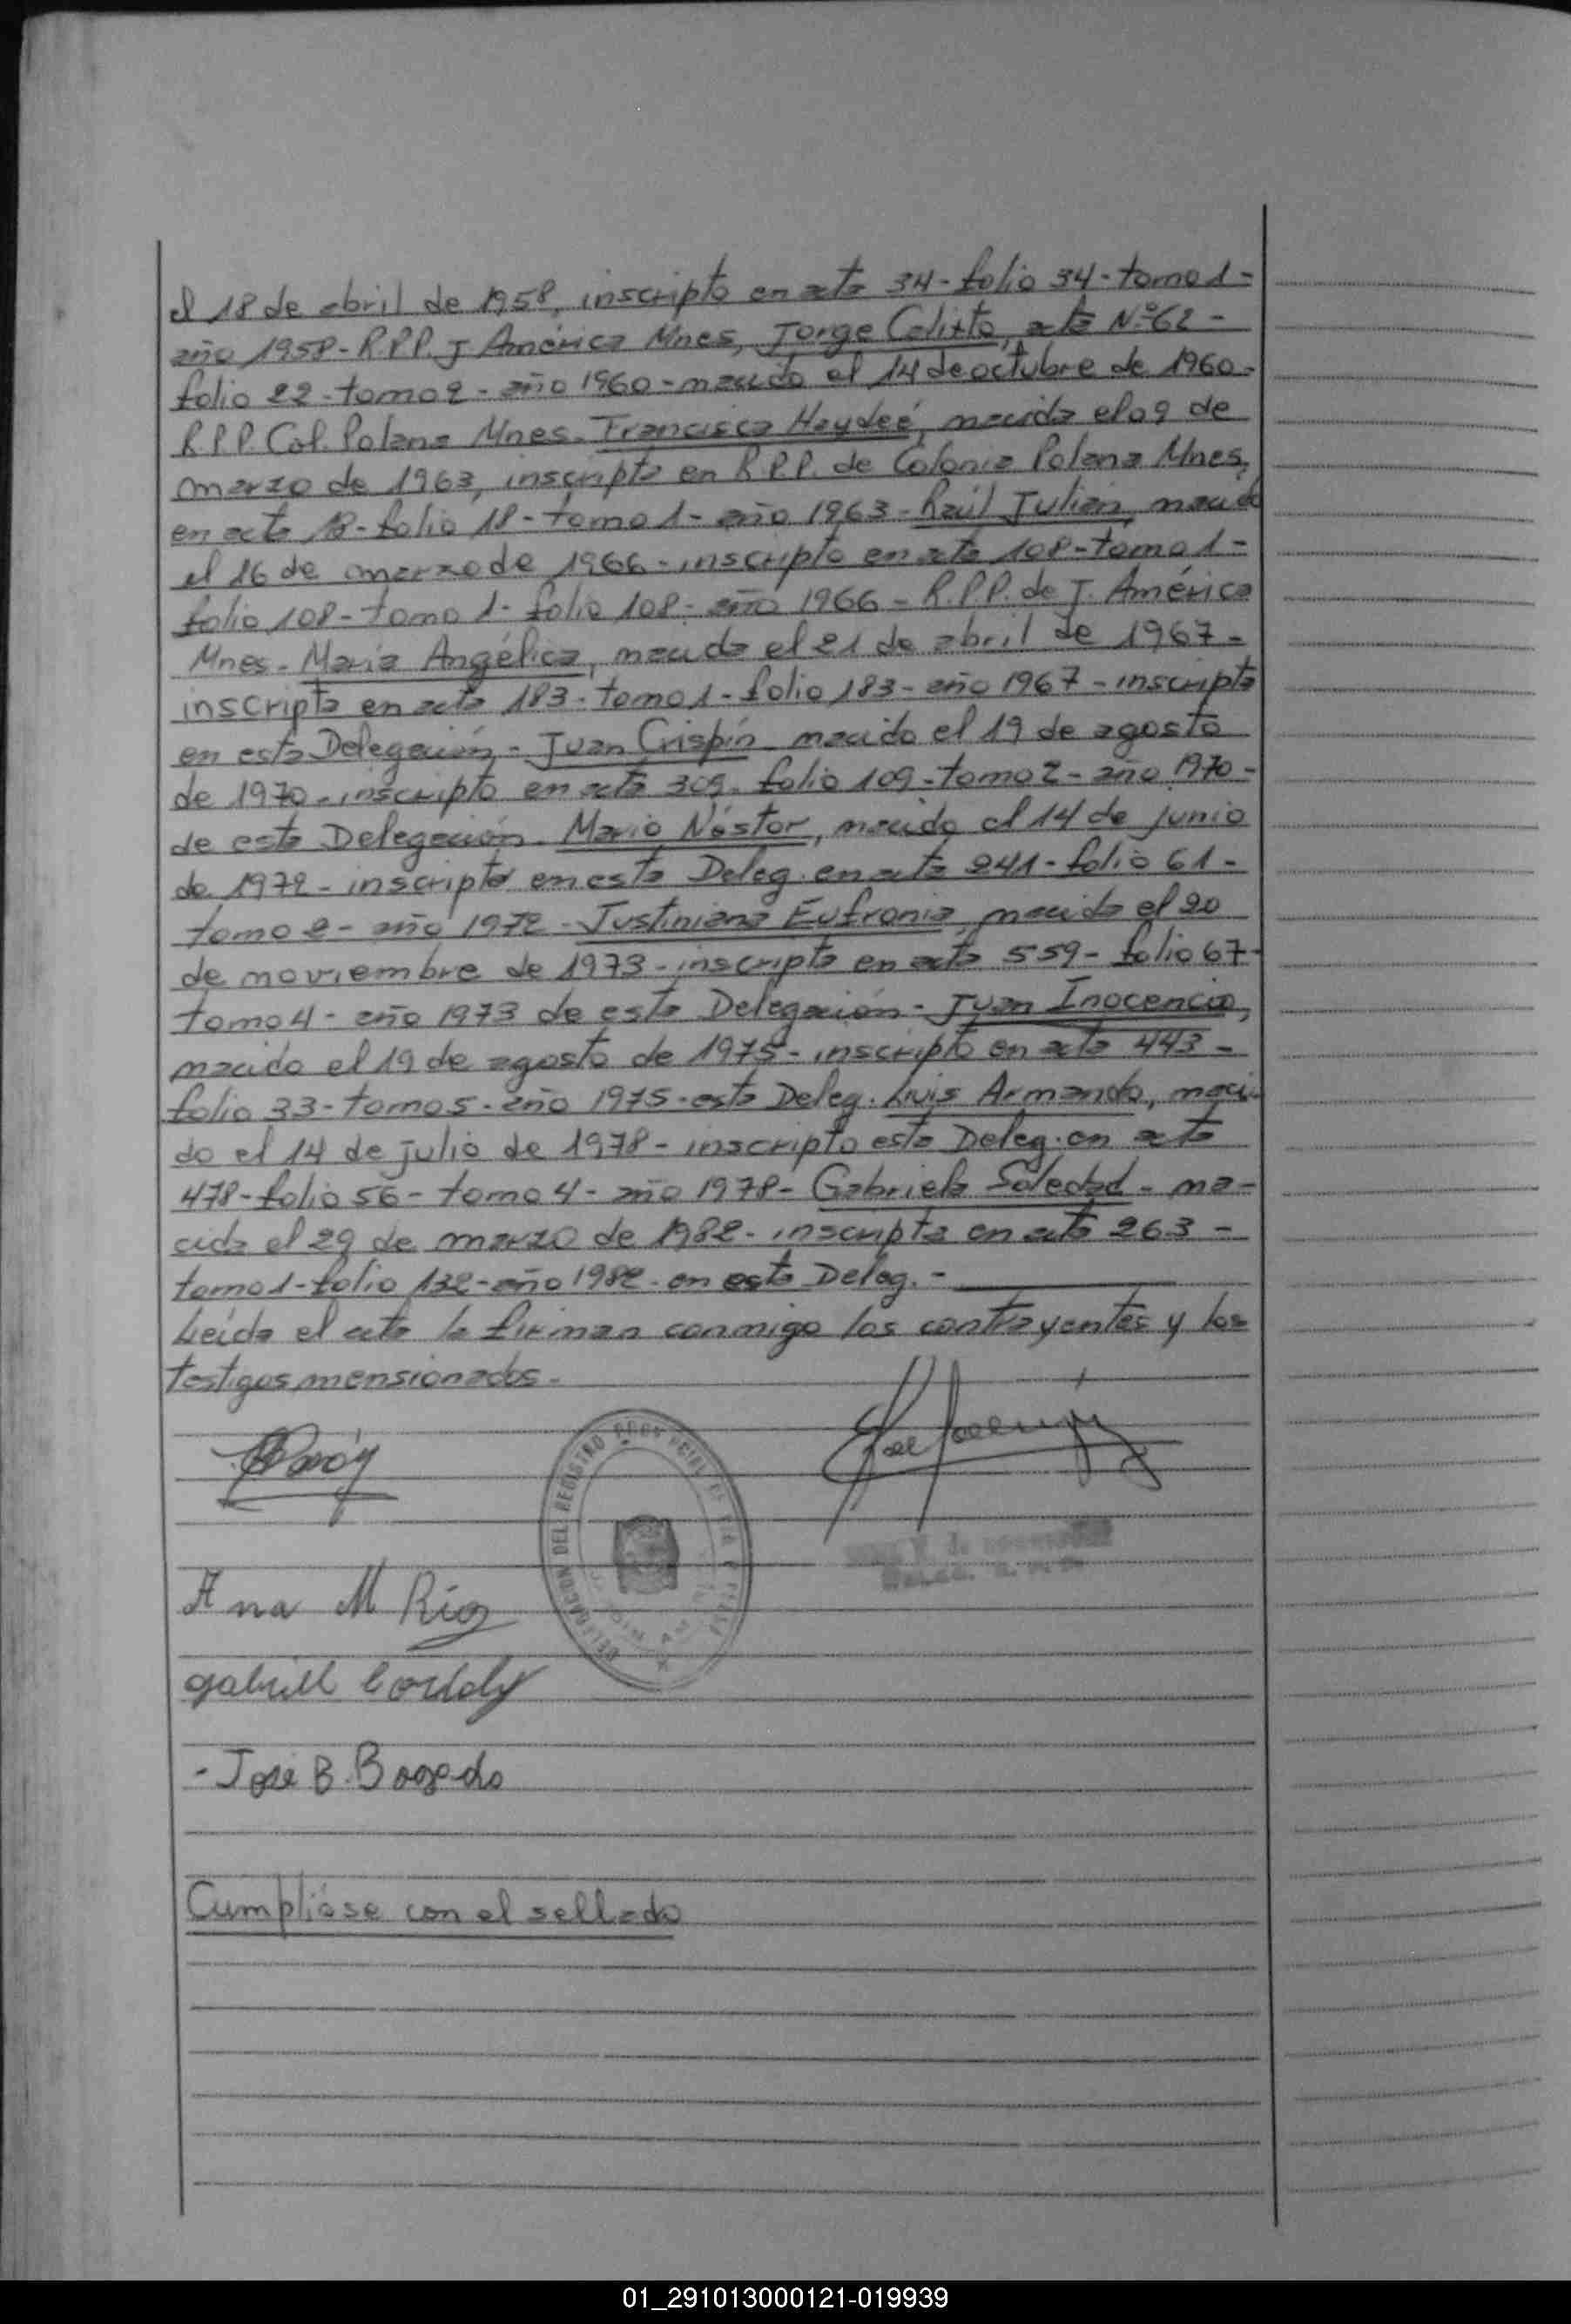 el 18 de abril de 1958, inscripto en acta 34- folio 34- tomo 1-
año 1958- R.P.P. J América Mnes, Jorge Calixto, acta N.º 62-
folio 22- tomo 2- año 1960- nacido el 14 de octubre de 1960-
R.P.P. Col. Polana Mnes- Francisca Haydeé, nacida el 09 de
marzo de 1963, inscripta en R.P.P. de Colonia Polana Mnes,
en acta 18- folio 18- tomo 1- año 1963- Raúl Julián, nacido
el 16 de marzo de 1966- inscripto en acta 108- tomo 1-
folio 108- tomo 1- folio 108- año 1966- R.P.P. de J. América
Mnes- María Angélica, nacida el 21 de abril de 1967-
inscripta en acta 183- tomo 1- folio 183- año 1967- inscripta
en esta Delegación,- Juan Crispín nacido el 19 de agosto
de 1970- inscripto en acta 309- folio 109- tomo 2- año 1970-
de esta Delegación- Mario Néstor, nacido el 14 de junio
de 1972- inscripto en esta Deleg. en acta 241- folio 61-
tomo 2- año 1972- Justiniana Eufronia, nacida el 20
de noviembre de 1973- inscripta en acta 559- folio 67-
tomo 4- año 1973 de esta Delegación- Juan Inocencio,
nacido el 19 de agosto de 1975- inscripto en acta 443-
folio 33- tomo 5- año 1975- esta Deleg. Luis Armando, naci-
do el 14 de julio de 1978- inscripto esta Deleg. en acta
478- folio 56- tomo 4- año 1978- Gabriela Soledad- na-
cida el 29 de marzo de 1982- inscripta en acta 263-
tomo 1- folio 132- año 1982- en esta Deleg.-
Leída el acta la firman conmigo los contrayentes y los
testigos mensionados-
DELEGACION DEL REGISTRO
Ana M Ríos
- José B. Bogado
Cumpliose con el sellado
01_291013000121-019939